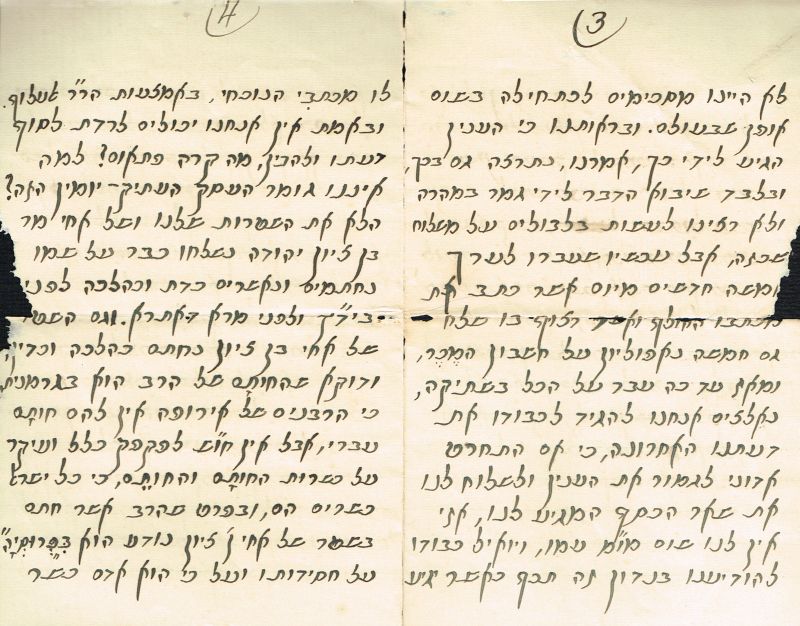 3
לא היינו מסכימים לכתחילה בשום
אופן שבעולם. ובראותנו כי הענין
הגיע לידי כך, אמרנו, נתרצה גם בכך,
ובלבד שיבוא הדבר לידי גמר במהרה
ולא רצינו לעשות בלבולים על משלוח
שכזה, אבל עכשיו שעברו לערך
חמשה חדשים מיום אשר כתב את
מכתבו החולף ואשר רצוף בו שלח
גם חמשה נאפוליון על חשבון המכר,
ומאז עד כה עבר על הכל בשתיקה,
נאלצים אנחנו להגיד לכבודו את
דעתנו האחרונה, כי אם התחרט
אדוני לגמור את הענין ולשלוח לנו
את שאר הכסף המגיע לנו, אזי
אין לנו שום מו"מ עמו, ויואיל כבודו
להודיענו בנדון זה תכף כאשר יגיע
4
לו מכתבי הנוכחי, באמצעות הר"ר
ובאמת אין אנחנו יכולים לרדת לסוף
דעתו ולהבין, מה קרה פתאום? למה
איננו גומר העסק העתיק-יומין הזה?
הלא את השטרות שלנו ושל אחי מר
בן ציון יהודה נשלחו כבר על שמו
נחתמים ונאשרים כדת וכהלכה לפני
ביד"ץ ולפני מרא דאתרא. וגם השטר
של אחי בן ציון נחתם כהלכה וכדין,
ודוקא שהחותם של הרב הוא בגרמנית
כי הרבנים של אירופה אין להם חותם
עברי, אבל אין חו"ש לפקפק כלל ועיקר
על כשרות החותם והחותם, כי כל ישראל
כשרים הם, ובפרט שהרב אשר חתם
בשטר של אחי ציון נודע הוא בפרוסיה"
על חסידותו ועל כי הוא אדם כשר